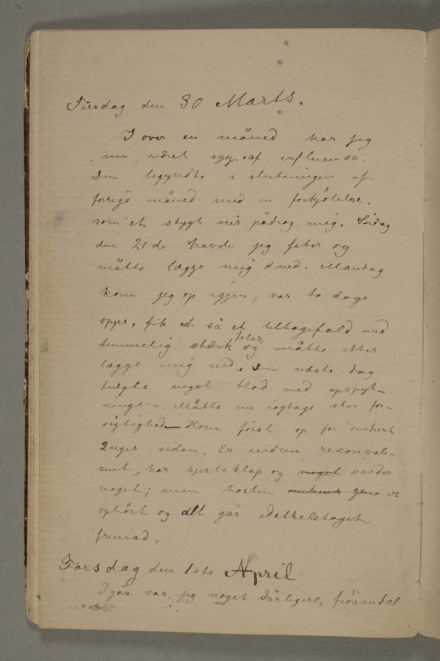 Tirsdag den 30 Marts.
I over en måned har jeg
nu været syg af influensa.
Den begyndte i slutningen af
forrige måned med en forkjølelse,
som et stygt veir pådrog mig. Lördag
den 21de havde jeg feber og
måtte lægge mig ned. Mandag
kom jeg op igjen, var to dage
oppe, fik så et tilbagefald med
temmelig stærk feber og måtte atter
lægge mig ned. Den næste dag
fulgte noget blod med opspyt-
ningen. Måtte nu iagtage stor for-
sigtighed. Kom först op for omkrent
2 uger siden. Er endnu rekonval-
sent, har hjerteklap og sveder
noget; men hosten er
ophört og alt går
fremad.
Torsdag den 1ste April
Igår var jeg noget dårligere,